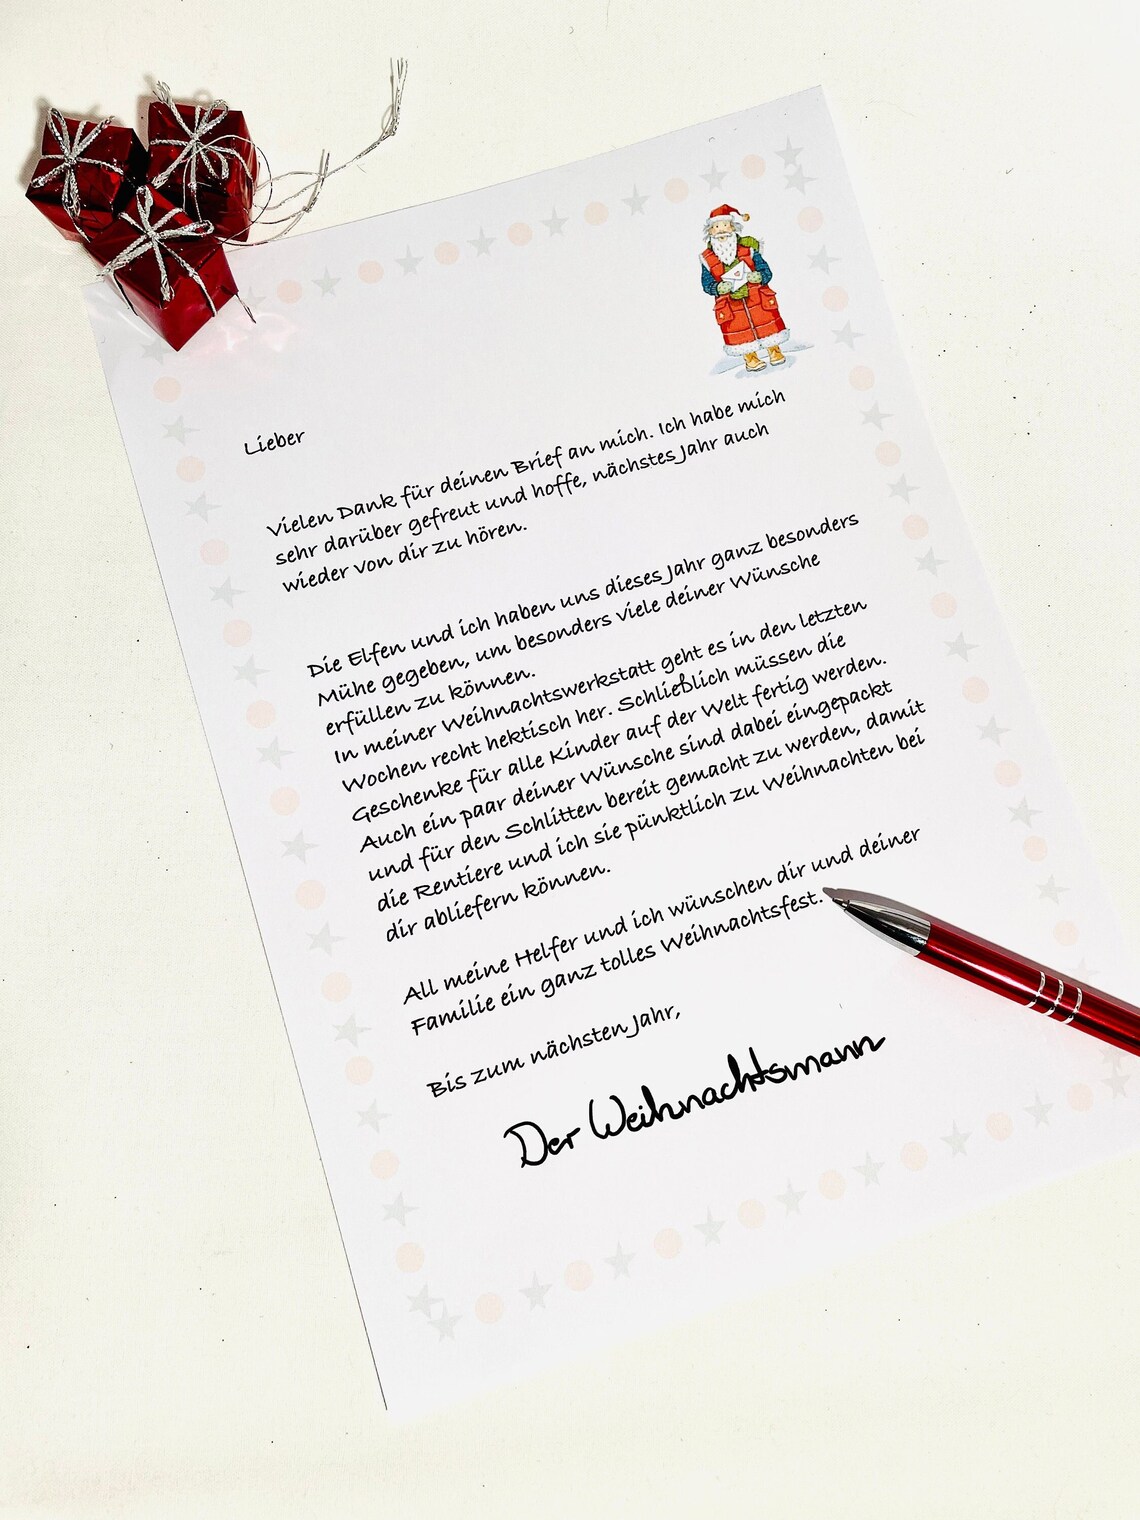 Lieber
Vielen Dank für deinen Brief an mich. Ich habe mich
sehr darüber gefreut und hoffe, nächstes Jahr auch
wieder von dir zu hören.
Die Elfen und ich haben uns dieses Jahr ganz besonders
Mühe gegeben, um besonders viele deiner Wünsche
erfüllen zu können.
In meiner Weihnachtswerkstatt geht es in den letzten
Wochen recht hektisch her. Schließlich müssen die
Geschenke für alle Kinder auf der Welt fertig werden.
Auch ein paar deiner Wünsche sind dabei eingepackt
und für den Schlitten bereit gemacht zu werden, damit
die Rentiere und ich sie pünktlich zu Weihnachten bei
dir abliefern können.
All meine Helfer und ich wünschen dir und deiner
Familie ein ganz tolles Weihnachtsfest.
Bis zum nächsten Jahr,
Der Weihnachtsmann